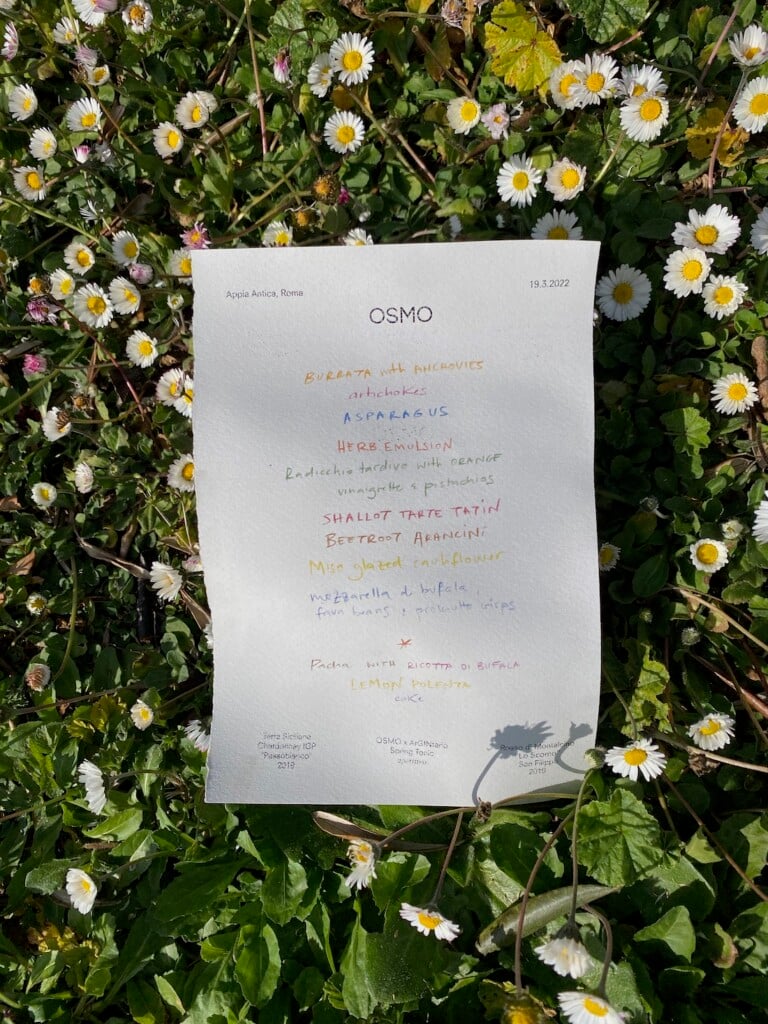 Appia Antica, Roma
19.3.2022
OSMO
BURRATA with ANCHOVIES
artichokes
ASPARAGUS
HERB EMULSION
Radicchio tardivo with ORANGE
vinaigrette & pistachios
SHALLOT TARTE TATIN
BEETROOT ARANCINI
Miso glazed cauliflower
mozzarella di bufala,
fava beans + prosciutto crisps
*
Pacha WITH RICOTTA DI BUFALA
LEMON POLENTA
cake
Terre Siciliane
Chardonnay IGP
"Passobianco"
2019
OSMO x ArGINtario
Spring Tonic
Rosso di Montalcino
Lo Scorno
San Filippo
2019